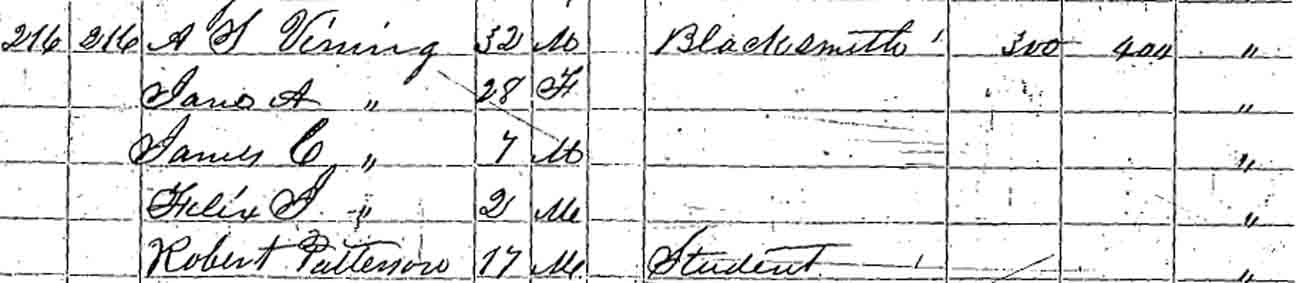 216 216 A S Vining 32 M Blacksmith 300 400 "
Jane A " 28 F "
James C " 7 M "
Felix J " 2 M "
Robert Patterson 17 M Student / "